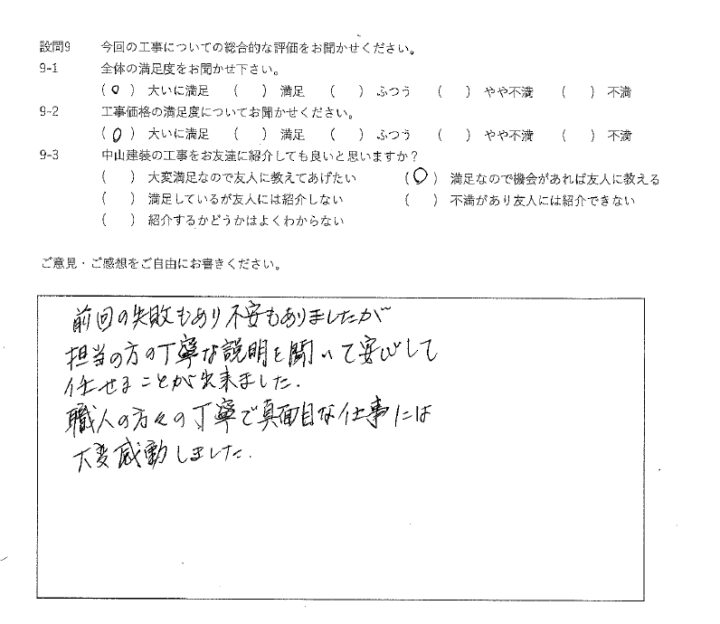 設問9 今回の工事についての総合的な評価をお聞かせください。
9-1 全体の満足度をお聞かせ下さい。
(○) 大いに満足 ( ) 満足 ( ) ふつう ( ) やや不満 ( ) 不満
9-2 工事価格の満足度についてお聞かせください。
(○) 大いに満足 ( ) 満足 ( ) ふつう ( ) やや不満 ( ) 不満
9-3 中山建装の工事をお友達に紹介しても良いと思いますか？
( ) 大変満足なので友人に教えてあげたい (○) 満足なので機会があれば友人に教える
( ) 満足しているが友人に紹介しない ( ) 不満があり友人には紹介できない
( ) 紹介するかどうかはよくわからない
ご意見・ご感想をご自由にお書きください。
前回の失敗もあり不安もありましたが
担当の方の丁寧な説明を聞いて安心して
任せることが出来ました.
職人の方々の丁寧で真面目な仕事には
大変感動しました.